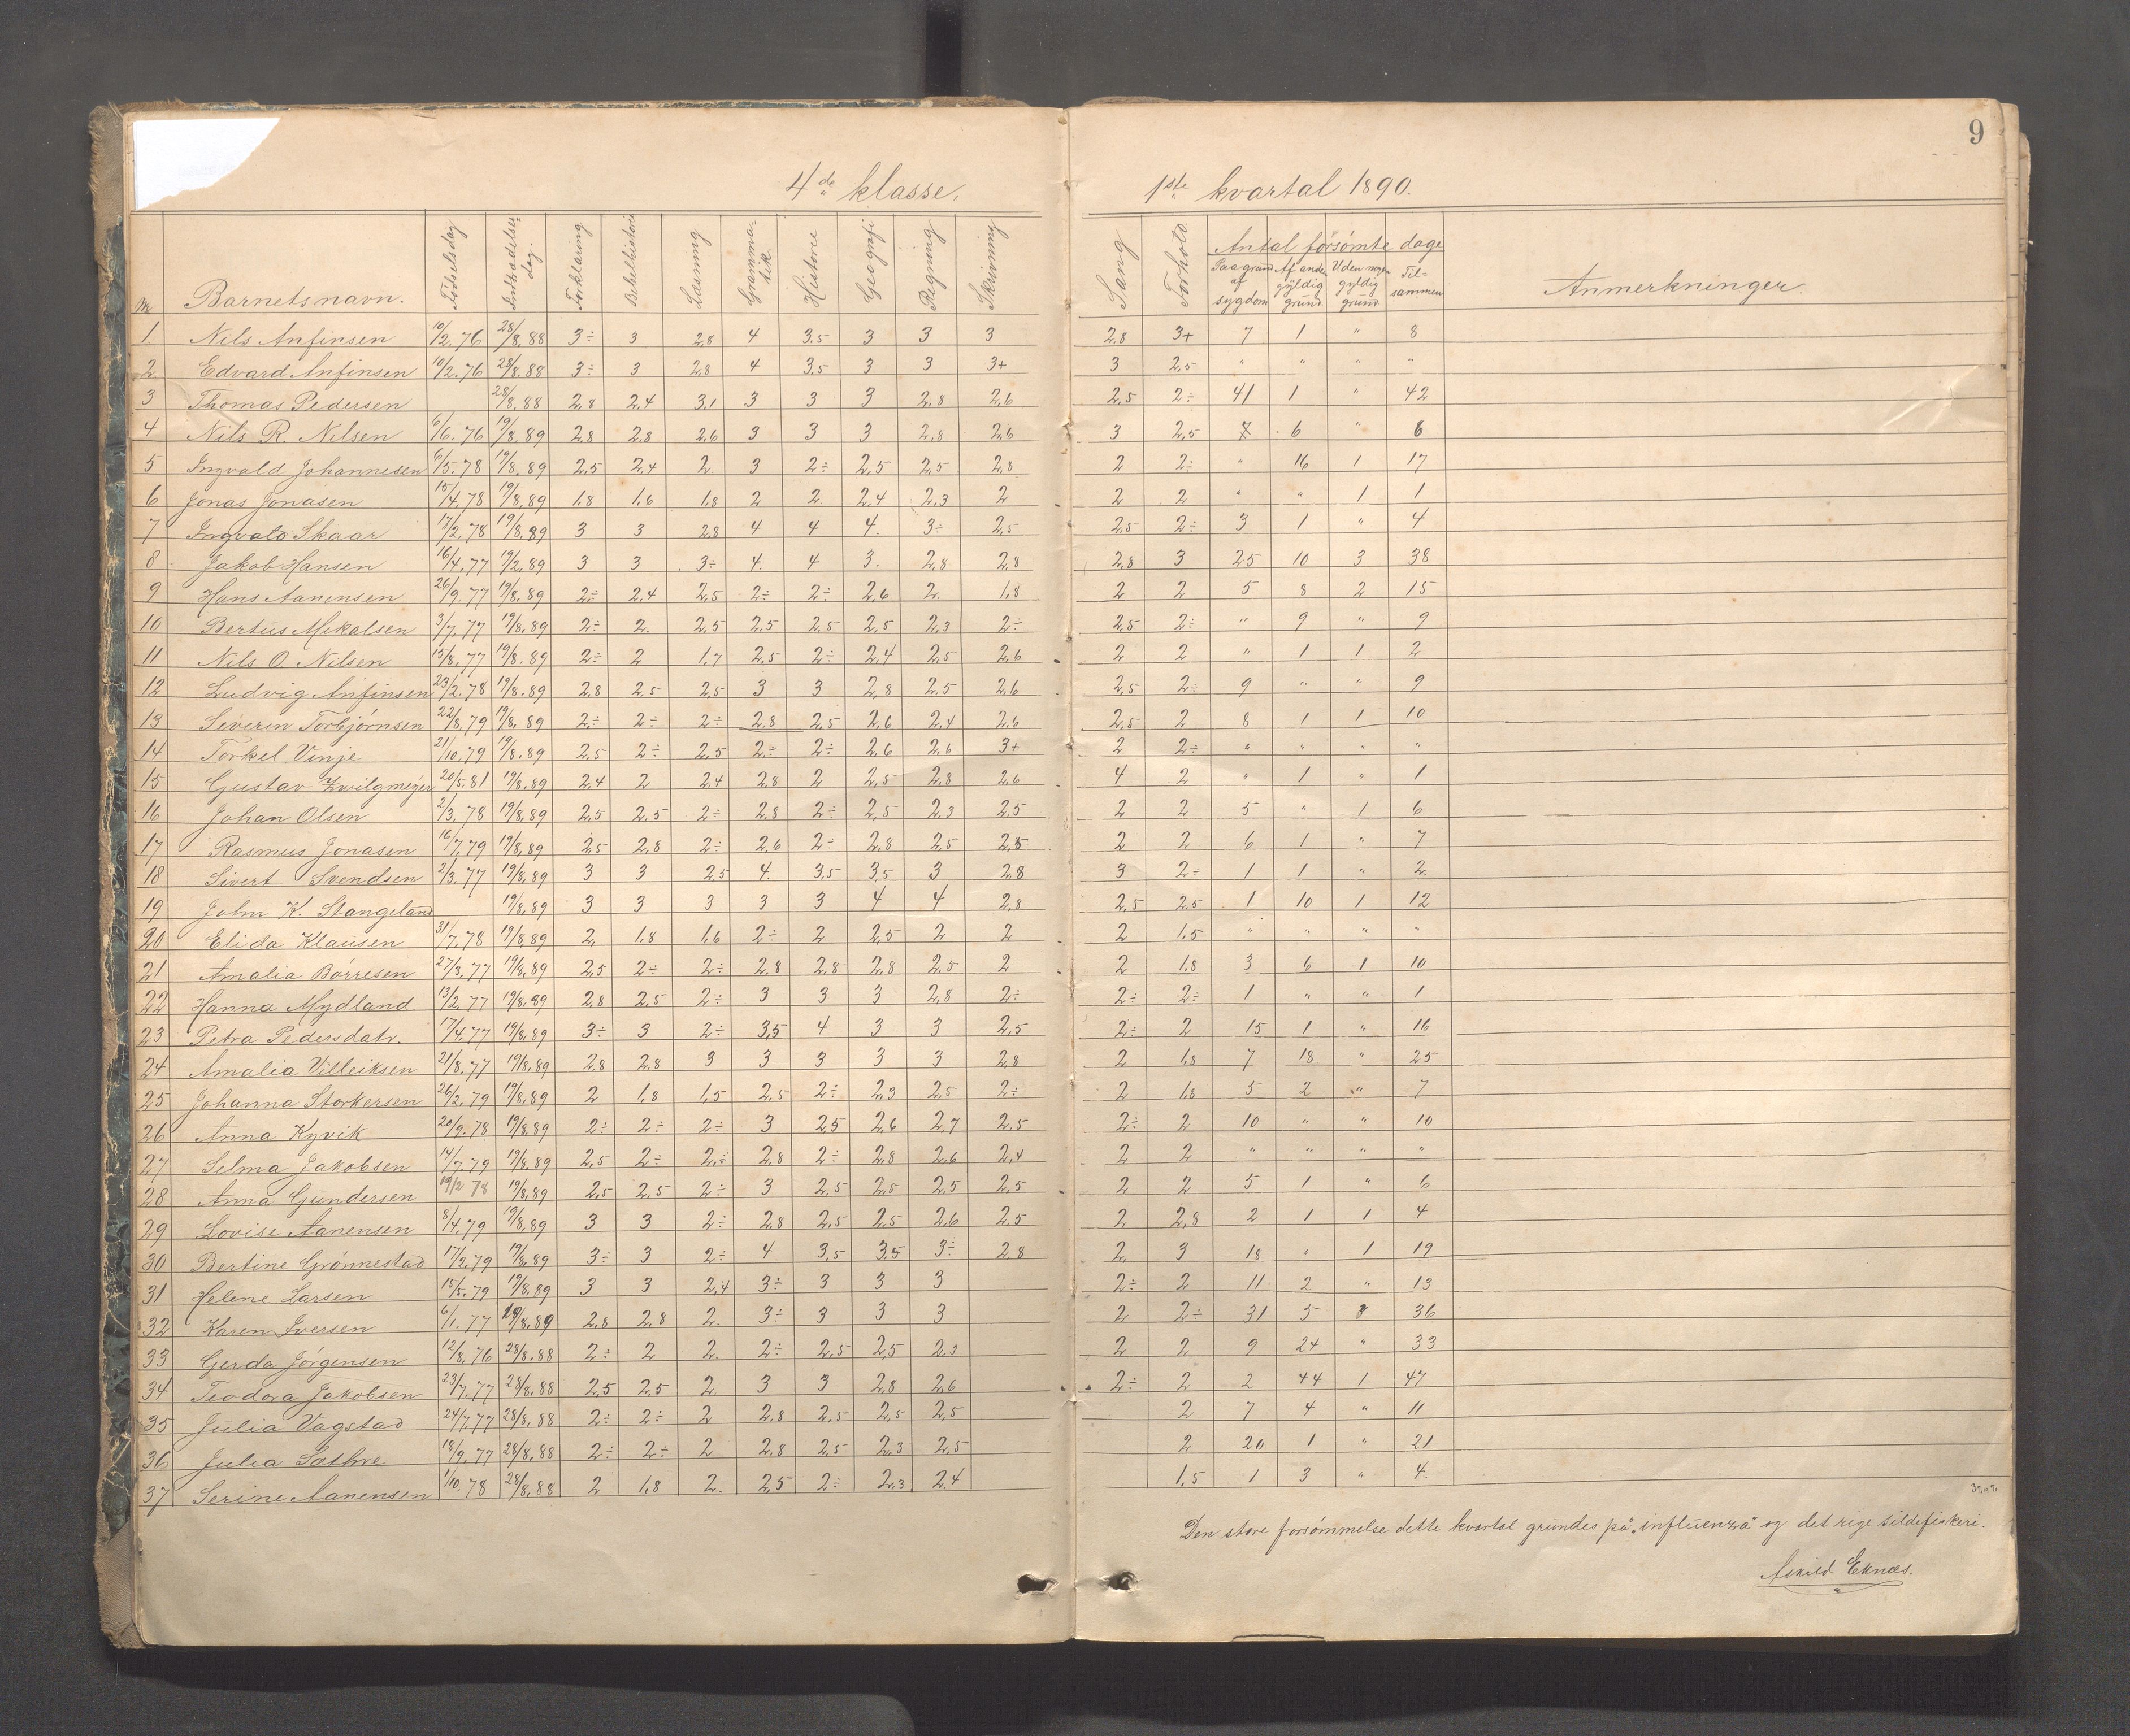 9
4de klasse. 1ste kvartal 1890.
Nr Barnets navn. Fødselsdag Indtrædelsesdag. Forklaring Bibelhistorie Læsning Grammatik. Historie Geografi Regning Skrivning Sang Forhold Antal forsömte dage Paa grund af sygdom Af anden gyldig grund Uden nogen gyldig grund Tilsammen Anmerkninger.
1. Nils Anfinsen 10/2.76 28/8.88 3÷ 3 2,8 4 3.5 3 3 3 2.8 3+ 7 1 " 8
2. Edvard Anfinsen 10/2.76 28/8.88 3÷ 3 2,8 4 3,5 3 3 3+ 3 2,5 " " " "
3 Thomas Pedersen 28/8.88 2,8 2,4 3,1 3 3 3 2,8 2,6 2,5 2÷ 41 1 " 42
4 Nils R. Nilsen 6/6.76 19/8.89 2,8 2,8 2,6 3 3 3 2,8 2,6 3 2,5 7 6 " 6
5 Ingvald Johannesen 6/5.78 19/8.89 2,5 2,4 2. 3 2÷ 2,5 2,5 2,8 2 2÷ " 16 1 17
6 Jonas Jonasen 15/4.78 19/8.89 1,8 1,6 1,8 2 2 2,4 2,3 2 2 2 " " 1 1
7 Ingvald Skaar 17/2.78 19/8.89 3 3 2,8 4 4 4. 3÷ 2,5 2,5 2÷ 3 1 " 4
8 Jakob Hansen 16/4.77 19/2.89 3 3 3÷ 4. 4 3. 2,8 2,8 2,8 3 25 10 3 38
9 Hans Aanensen 26/9.77 19/8.89 2÷ 2,4 2,5 2÷ 2÷ 2,6 2. 1,8 2 2 5 8 2 15
10 Bertus Mikalsen 3/7.77 19/8.89 2÷ 2. 2,5 2,5 2,5 2,5 2,3 2÷ 2,5 2÷ " 9 " 9
11 Nils O. Nilsen 15/8.77 19/8.89 2÷ 2 1,7 2,5 2÷ 2,4 2,5 2,6 2 2 " 1 1 2
12 Ludvig Anfinsen 23/2.78 19/8.89 2,8 2,5 2,5 3 3 2,8 2,5 2,6 2,5 2÷ 9 " " 9
13 Severin Torbjörnsen 22/8.79 19/8.89 2÷ 2÷ 2÷ 2,8 2,5 2,6 2,4 2,6 2,5 2 8 1 1 10
14 Torkel Vinje 21/10.79 19/8.89 2,5 2÷ 2,5 2÷ 2÷ 2,6 2,6 3+ 2 2÷ " " " "
15 Gustav Zwilgmeyer 20/5.81 19/8.89 2,4 2 2,4 2,8 2 2,5 2,8 2,6 4 2 " 1 " 1
16 Johan Olsen 2/3.78 19/8.89 2,5 2,5 2÷ 2,8 2÷ 2,5 2,3 2,5 2 2 5 " 1 6
17 Rasmus Jonasen 16/7.79 19/8.89 2,5 2,8 2÷ 2,6 2÷ 2,8 2,5 2,5 2 2 6 1 " 7
18 Sivert Svendsen 2/3.77 19/8.89 3 3 2,5 4. 3,5 3,5 3 2,8 3 2÷ 1 1 " 2
19 John K. Stangeland 19/8.89 3 3 3 3 3 4 4 2,8 2,5 2,5 1 10 1 12
20 Elida Klausen 31/7.78 19/8.89 2, 1,8 1,6 2÷ 2 2,5 2 2 2 1,5 " " " "
21 Amalia Börresen 27/3.77 19/8.89 2,5 2÷ 2÷ 2,8 2,8 2,8 2,5 2 2 1,8 3 6 1 10
22 Hanna Mydland 13/2.77 19/8.89 2,8 2,5 2÷ 3 3 3 2,8 2÷ 2÷ 2÷ 1 " " 1
23 Petra Pedersdatr. 17/4.77 19/8.89 3÷ 3 2÷ 3,5 4 3 3 2,5 2÷ 2 15 1 " 16
24 Amalia Villeiksen 21/8.77 19/8.89 2,8 2,8 3 3 3 3 3 2,8 2 1,8 7 18 " 25
25 Johanna Storkersen 26/2.79 19/8.89 2 1,8 1,5 2,5 2÷ 2,3 2,5 2÷ 2 1,8 5 2 " 7
26 Anna Kyvik 20/9.78 19/8.89 2÷ 2÷ 2÷ 3 2,5 2,6 2,7 2,5 2÷ 2 10 " " 10
27 Selma Jakobsen 14/7.79 19/8.89 2,5 2÷ 2÷ 2,8 2÷ 2,8 2,6 2,4 2 2 " " " "
28 Anna Gundersen 19/2 78 19/8.89 2,5 2,5 2÷ 3 2,5 2,5 2,5 2,5 2 2 5 1 " 6
29 Lovise Aanensen 8/4.79 19/8.89 3 3 2÷ 2,8 2,5 2,5 2,6 2,5 2 2,8 2 1 1 4
30 Bertine Grönnestad 17/2.79 19/8.89 3÷ 3 2÷ 4 3,5 3,5 3÷ 2,8 2. 3 18 " 1 19
31 Helene Larsen 15/5.79 19/8.89 3 3 2,4 3÷ 3 3 3 2÷ 2 11 2 " 13
32 Karen Iversen 6/1.77 19/8.89 2,8 2,8 2. 3÷ 3 3 3 2 2÷ 31 5 " 36
33 Gerda Jörgensen 12/8.76 28/8.88 2÷ 2 2. 2÷ 2,5 2,5 2,3 2 2 9 24 " 33
34 Teodora Jakobsen 23/7.77 28/8.88 2,5 2,5 2. 3 3 2,8 2,6 2÷ 2 2 44 1 47
35 Julia Vagstad 24/7.77 28/8.88 2÷ 2÷ 2 2,8 2,5 2,5 2,5 2 7 4 " 11
36 Julia Sæthre 18/9.77 28/8.88 2÷ 2÷ 2 2,8 2,5 2,3 2,5 2 20 1 " 21
37 Serine Aanensen 1/10.78 28/8.88 2 1,8 2. 2,5 2÷ 2,3 2,4 1,5 1 3 " 4.
Den store forsömmelse dette kvartal grundes på "influenza" og det rige sildefiskeri.
Askild Eknes.